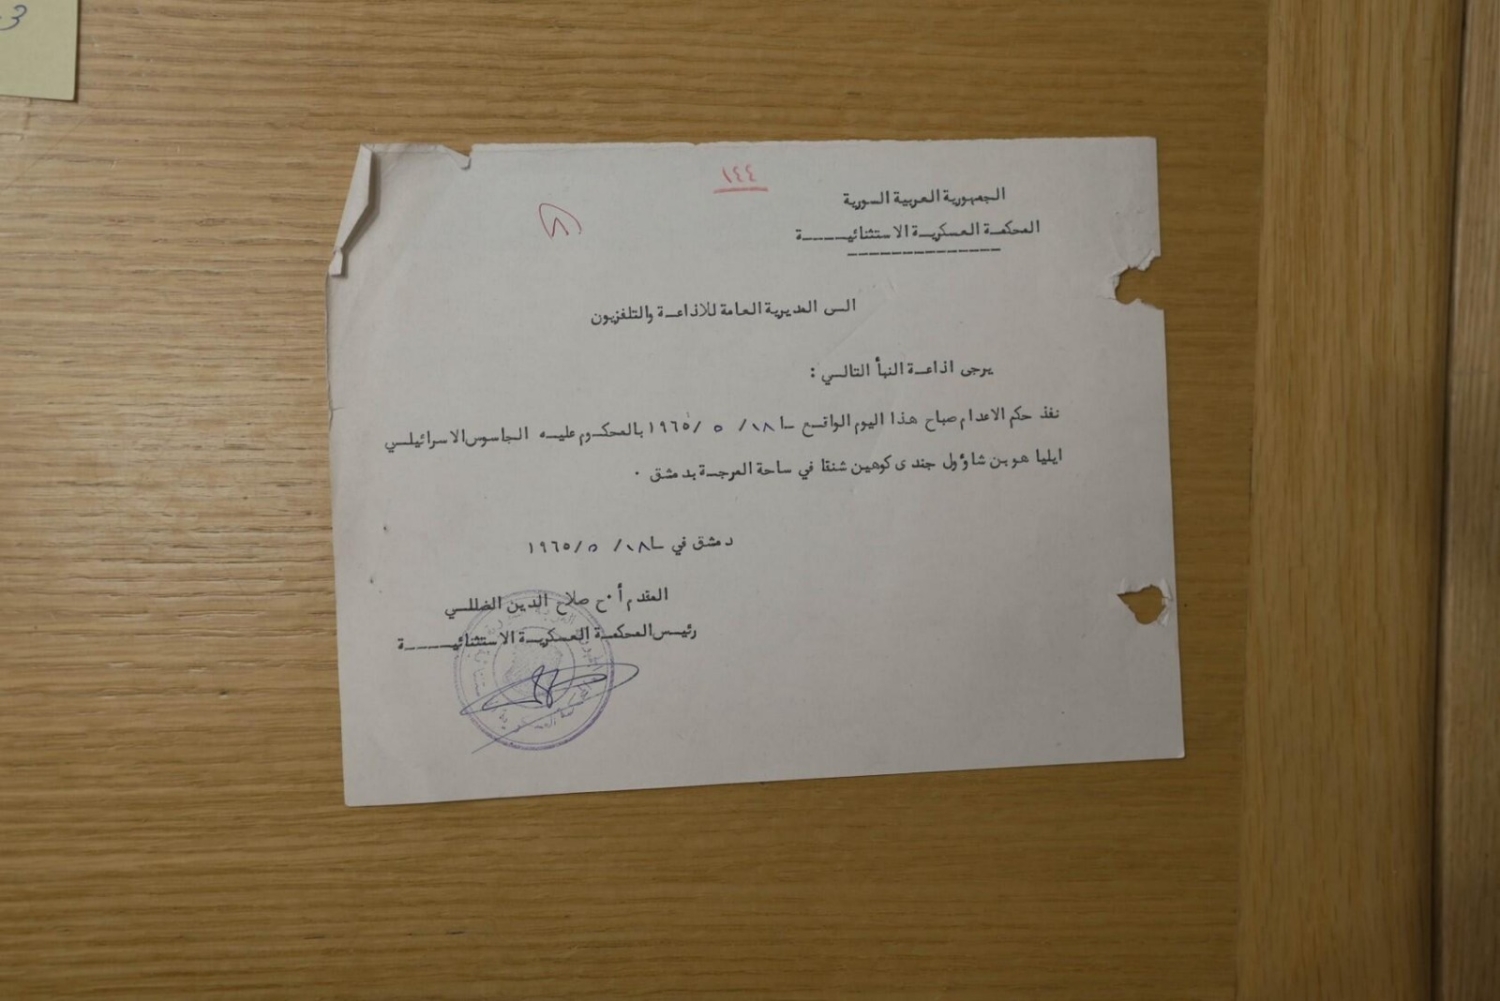 3
١٤٤
الجمهورية العربية السورية
المحكمة العسكرية الاستثنائيـــــة
الى المديرية العامة للاذاعـة والتلفزيون
يرجى اذاعـة النبأ التالـي :
نفذ حكم الاعدام صباح هذا اليوم الواقـع ـا١٨/ ٥ /١٩٦٥ بالمحكـوم عليـه الجاسوس الاسرائيلـي
ايليا هو بن شاؤول جندى كوهين شنقا في ساحة المرجـة بدمشق ٠
دمشق في ـا١٨/ ٥ /١٩٦٥
المقدم أ٠ح صلاح الدين الضللـي
رئيـس المحكمـة العسكريـة الاستثنائيـــــة